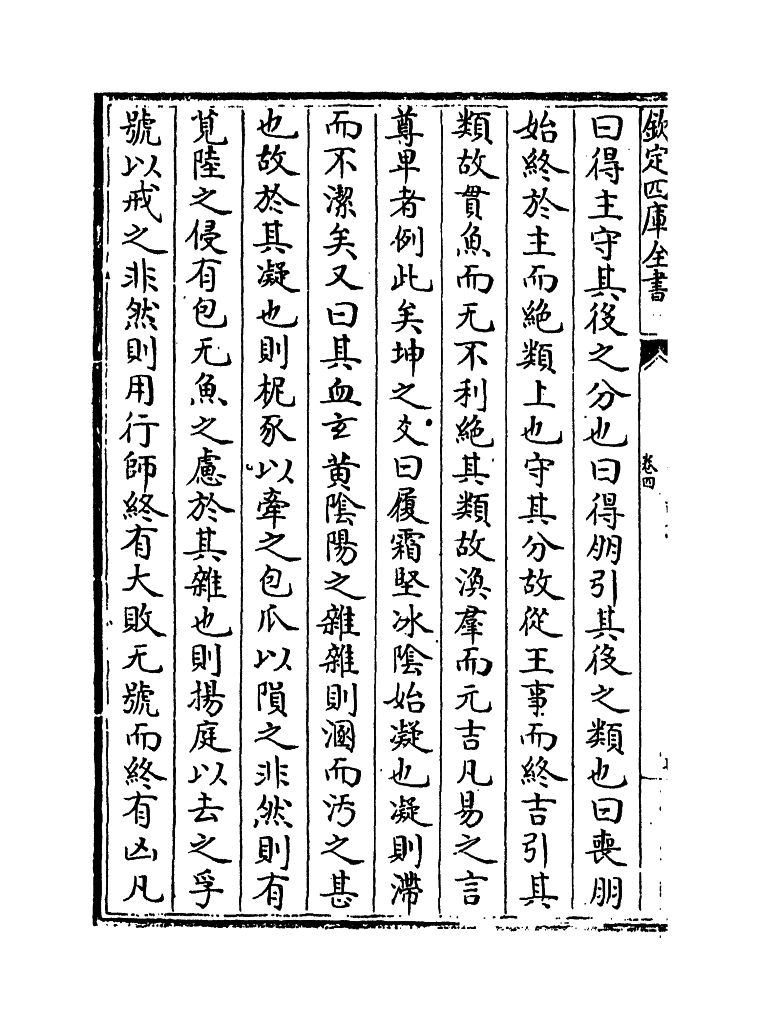 欽定四庫全書
卷四
曰得主守其後之分也曰得朋引其後之類也曰喪朋
始終於主而絶類上也守其分故從王事而終吉引其
類故貫魚而无不利絶其類故渙羣而元吉凡易之言
尊卑者例此矣坤之爻曰履霜堅冰陰始凝也凝則滯
而不潔矣又曰其血玄黄陰陽之雜雜則溷而汚之甚
也故於其凝也則柅豕以牽之包瓜以隕之非然則有
莧陸之侵有包无魚之慮於其雜也則揚庭以去之孚
號以戒之非然則用行師終有大敗无號而終有凶凡